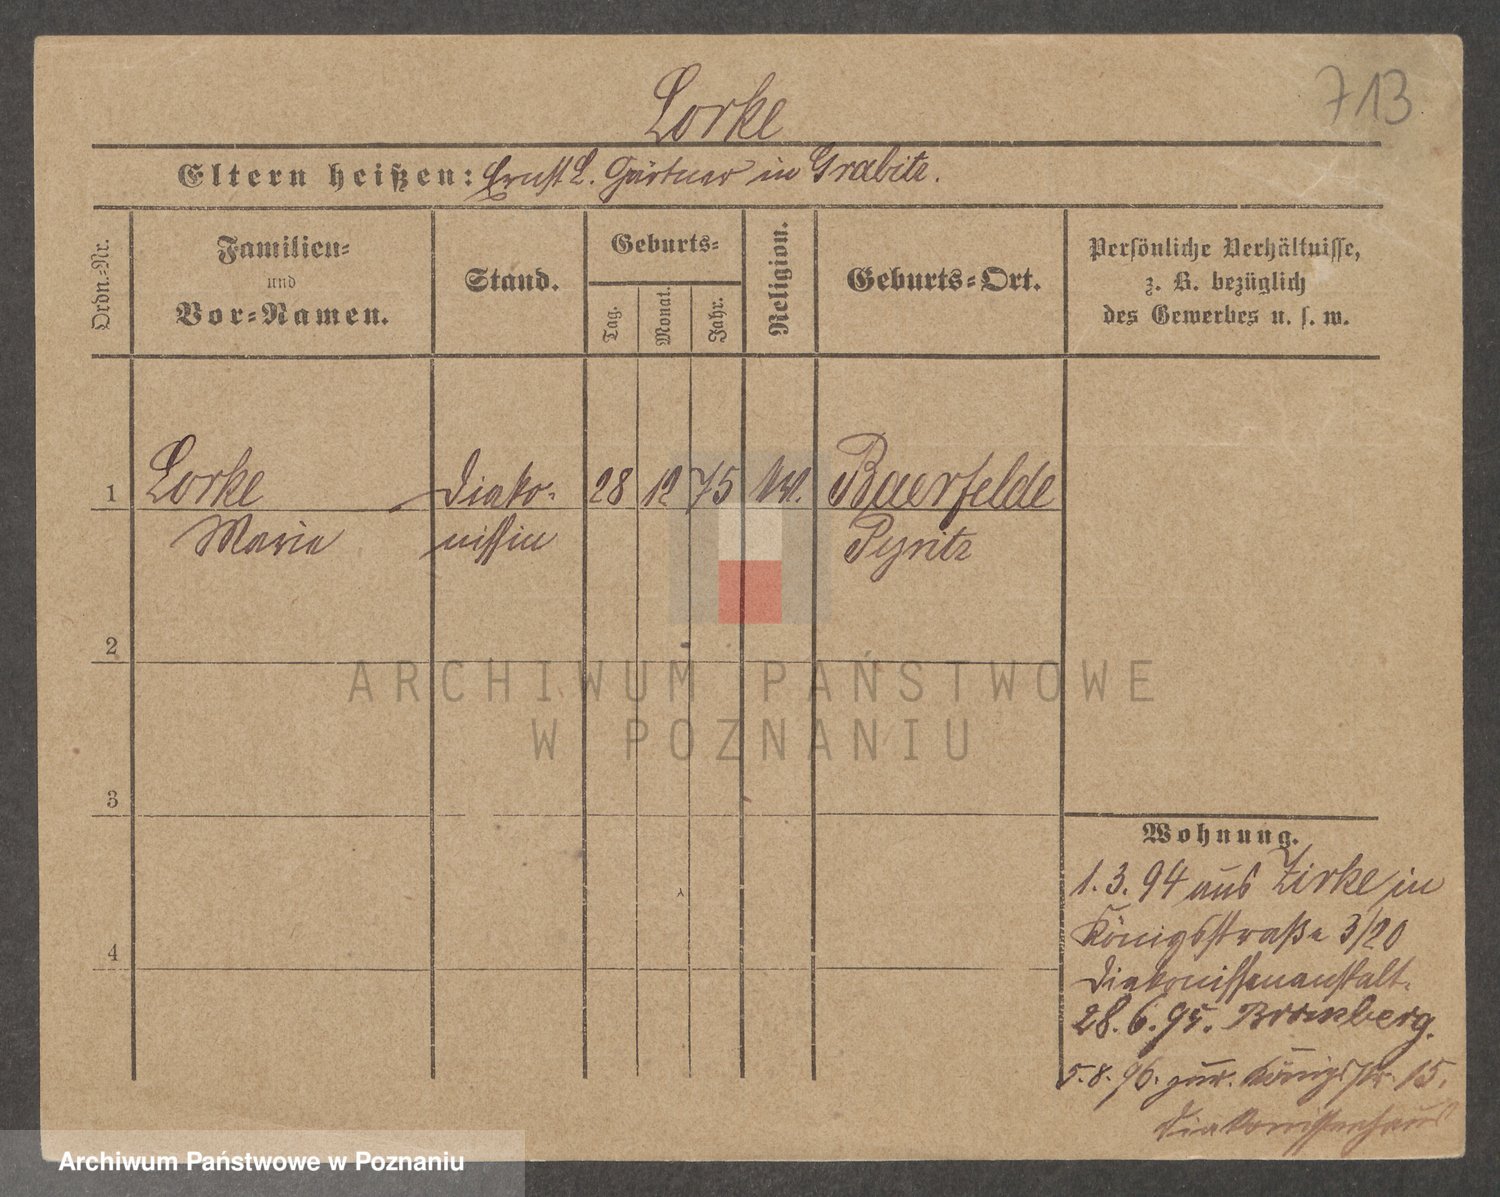 713
Lorke
Eltern heißen: Ernst L. Gärtner in Grabitz.
Ordn.-Nr.
Familien-
und
Vor-Namen.
Stand.
Geburts-
Tag.
Monat.
Jahr.
Religion.
Geburts-Ort.
Persönliche Verhältnisse,
z. B. bezüglich
des Gewerbes u. s. w.
1 Lorke Diako- 28 12 75 Baerfelde
Marie nissin Pyritz
2
3
4
Wohnung.
1. 3. 94 aus Zirke in
Königsstraße 3/20
Diakonissenanstalt.
28. 6. 95. Bromberg.
5. 8. 96. zur. Königstr. 15.
Diakonissenhaus
ARCHIWUM PAŃSTWOWE
W POZNANIU
Archiwum Państwowe w Poznaniu